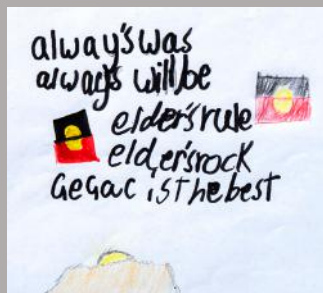 alway's was
always will be
elder's rule
elder's rock
GEGAC is the best